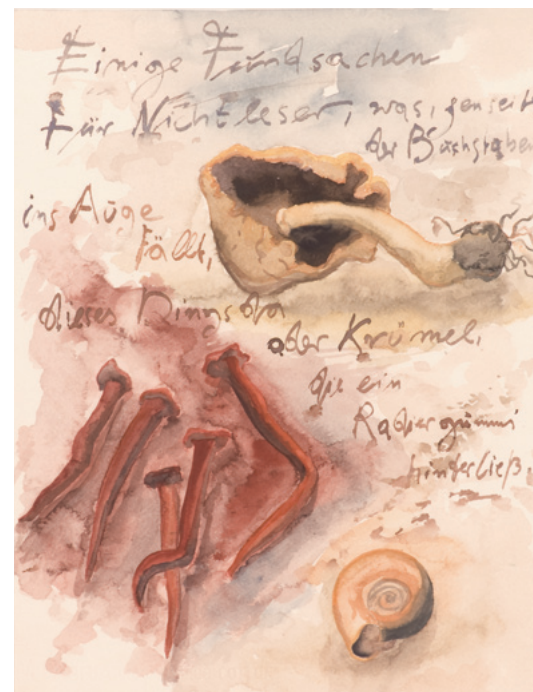 Einige Fundsachen
Für Nichtleser, was, jenseit
der Buchstaben
ins Auge
fällt,
dieses Dingsda
oder Krümel,
die ein
Radiergummi
hinterließ.